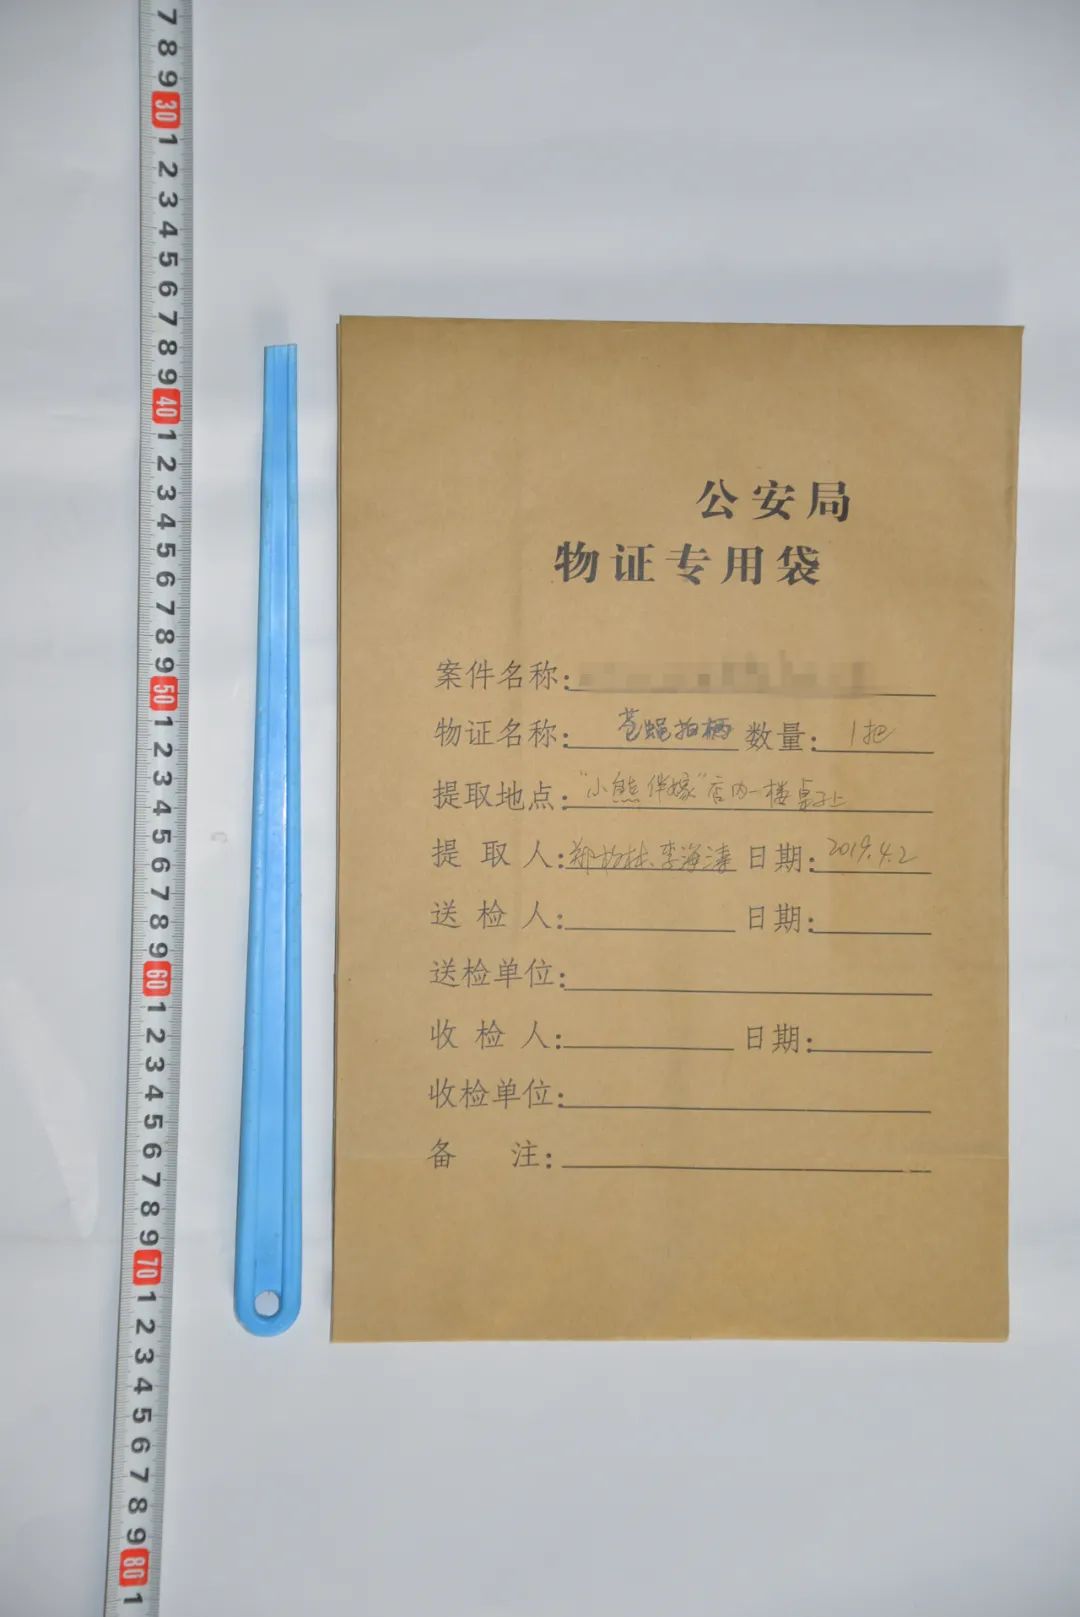 7 8 9 30 1 2 3 4 5 6 7 8 9 40 1 2 3 4 5 6 7 8 9 50 1 2 3 4 5 6 7 8 9 60 1 2 3 4 5 6 7 8 9 70 1 2 3 4 5 6 7 8 9 80 1
公安局
物证专用袋
案件名称:
物证名称: 苍蝇拍柄 数量: 1把
提取地点: "小熊伴嫁"店内一楼桌子上
提取人: 李海涛 日期: 2019.4.2
送检人: 日期:
送检单位:
收检人: 日期:
收检单位:
备注: